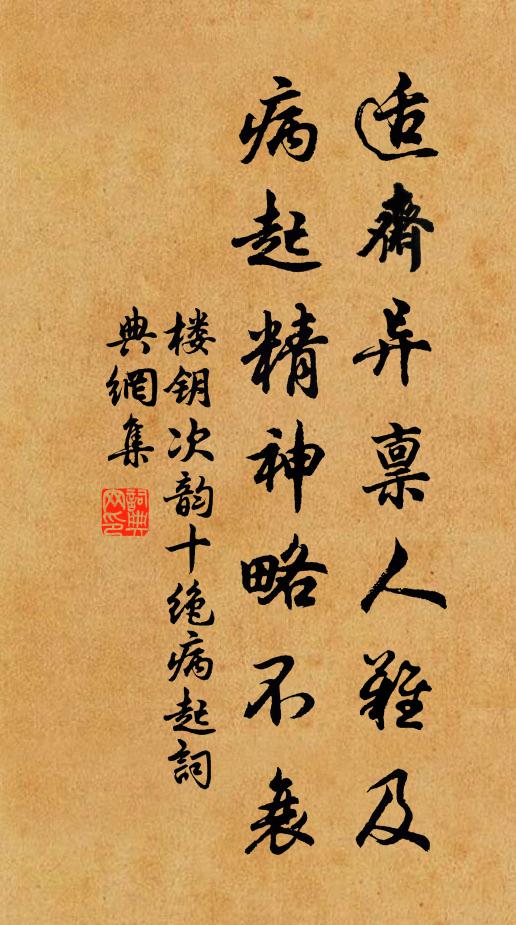 适齋异禀人難及
病起精神略不衰
楼钥次韵十绝病起詞
典網集
詞典網印